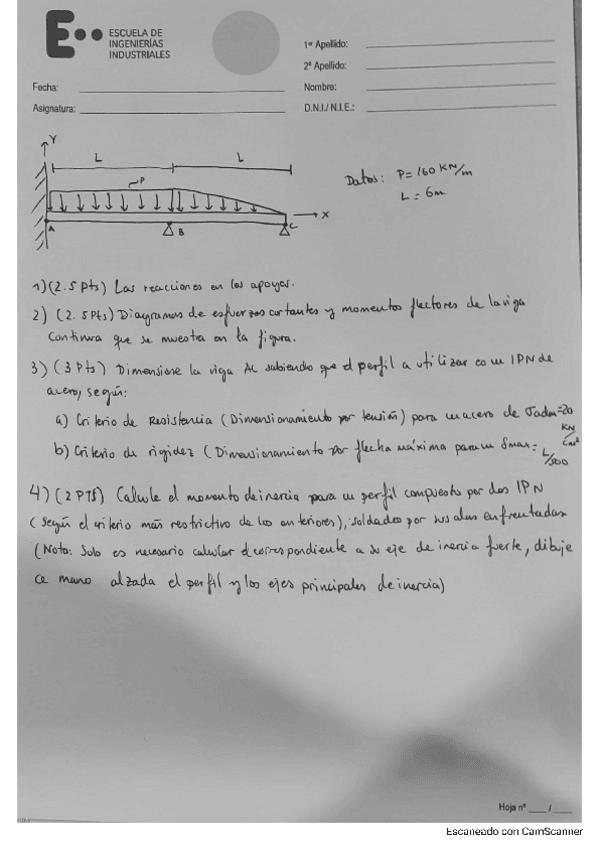 ESCUELA DE
INGENIERÍAS
INDUSTRIALES
1er Apellido:
2º Apellido:
Fecha:
Nombre:
Asignatura:
D.N.I./ N.I.E.:
Y
L L
P
Datos: P=160 KN/m
L = 6m
X
A B C
1) (2.5 Pts) Las reacciones en los apoyos.
2) (2.5 Pts) Diagramas de esfuerzos cortantes y momentos flectores de la viga
continua que se muestra en la figura.
3) (3 Pts) Dimensione la viga AC sabiendo que el perfil a utilizar es un IPN de
acero, según:
a) Criterio de Resistencia (Dimensionamiento por tensión) para un acero de σadm=20 KN/cm²
b) Criterio de rigidez (Dimensionamiento por flecha máxima para un δmax = L/500
4) (2 PTS) Calcule el momento de inercia para un perfil compuesto por dos IPN
(según el criterio más restrictivo de los anteriores), soldados por sus alas enfrentadas
(Nota: Solo es necesario calcular el correspondiente a su eje de inercia fuerte, dibuje
a mano alzada el perfil y los ejes principales de inercia)
Hoja nº ___ / ___
Escaneado con CamScanner